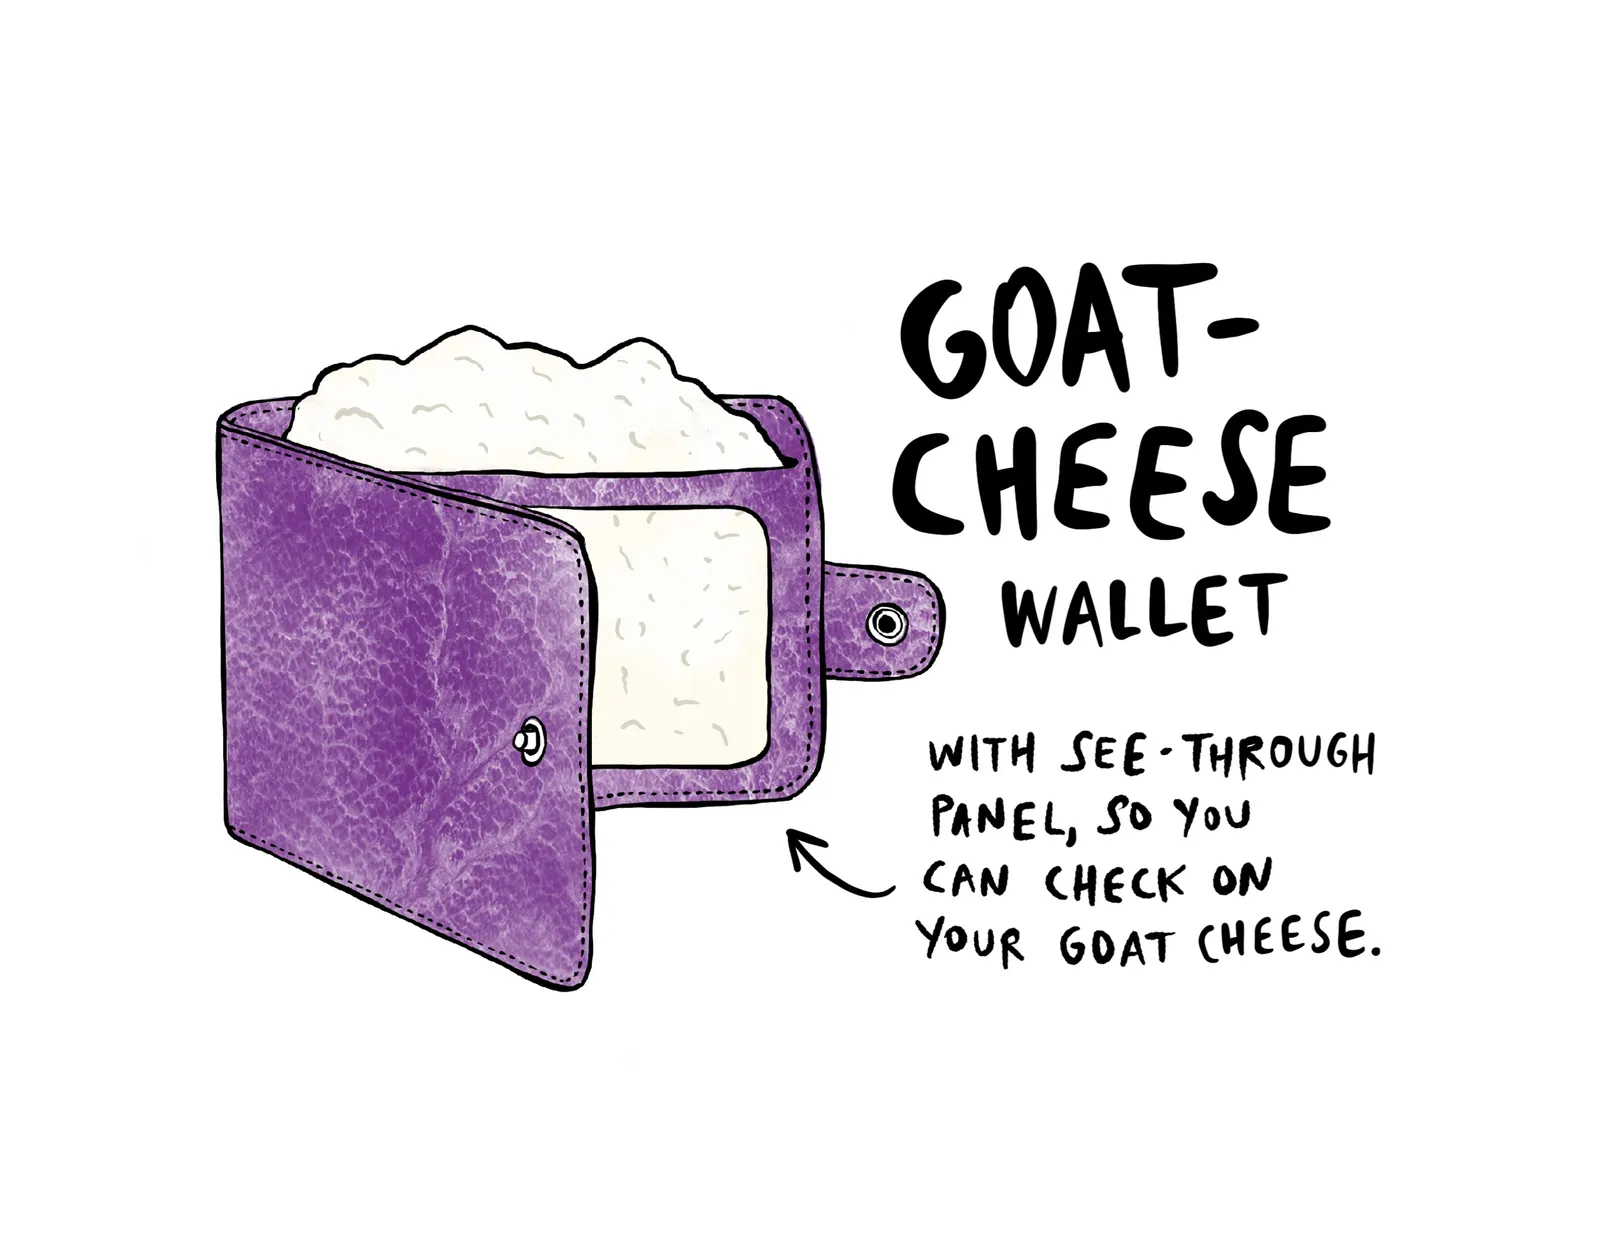 GOAT-
CHEESE
WALLET
WITH SEE-THROUGH
PANEL, SO YOU
CAN CHECK ON
YOUR GOAT CHEESE.